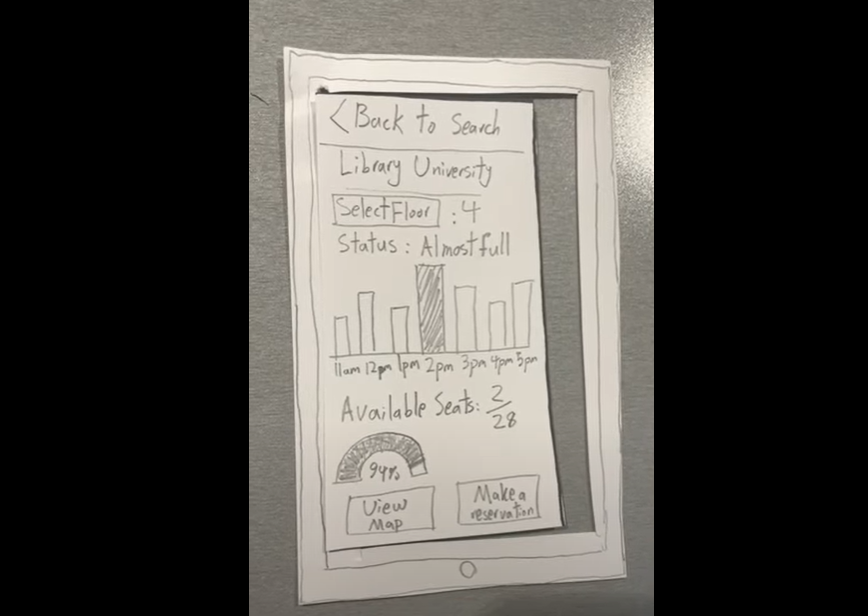 < Back to Search
Library University
Select Floor : 4
Status : Almost full
11am 12pm 1pm 2pm 3pm 4pm 5pm
Available Seats: 2/28
94%
View Map
Make a reservation